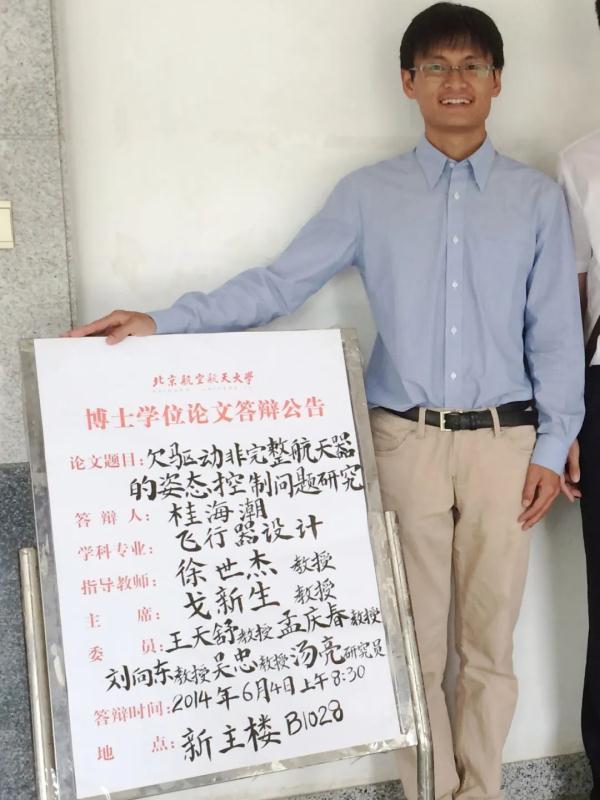 北京航空航天大学
博士学位论文答辩公告
论文题目：欠驱动非完整航天器
的姿态控制问题研究
答辩人：桂海潮
学科专业：飞行器设计
指导教师：徐世杰 教授
主席：戈新生 教授
委员：王天舒教授 孟庆春教授
刘向东教授 吴忠教授 汤亮研究员
答辩时间：2014年6月4日上午8:30
地点：新主楼B1028